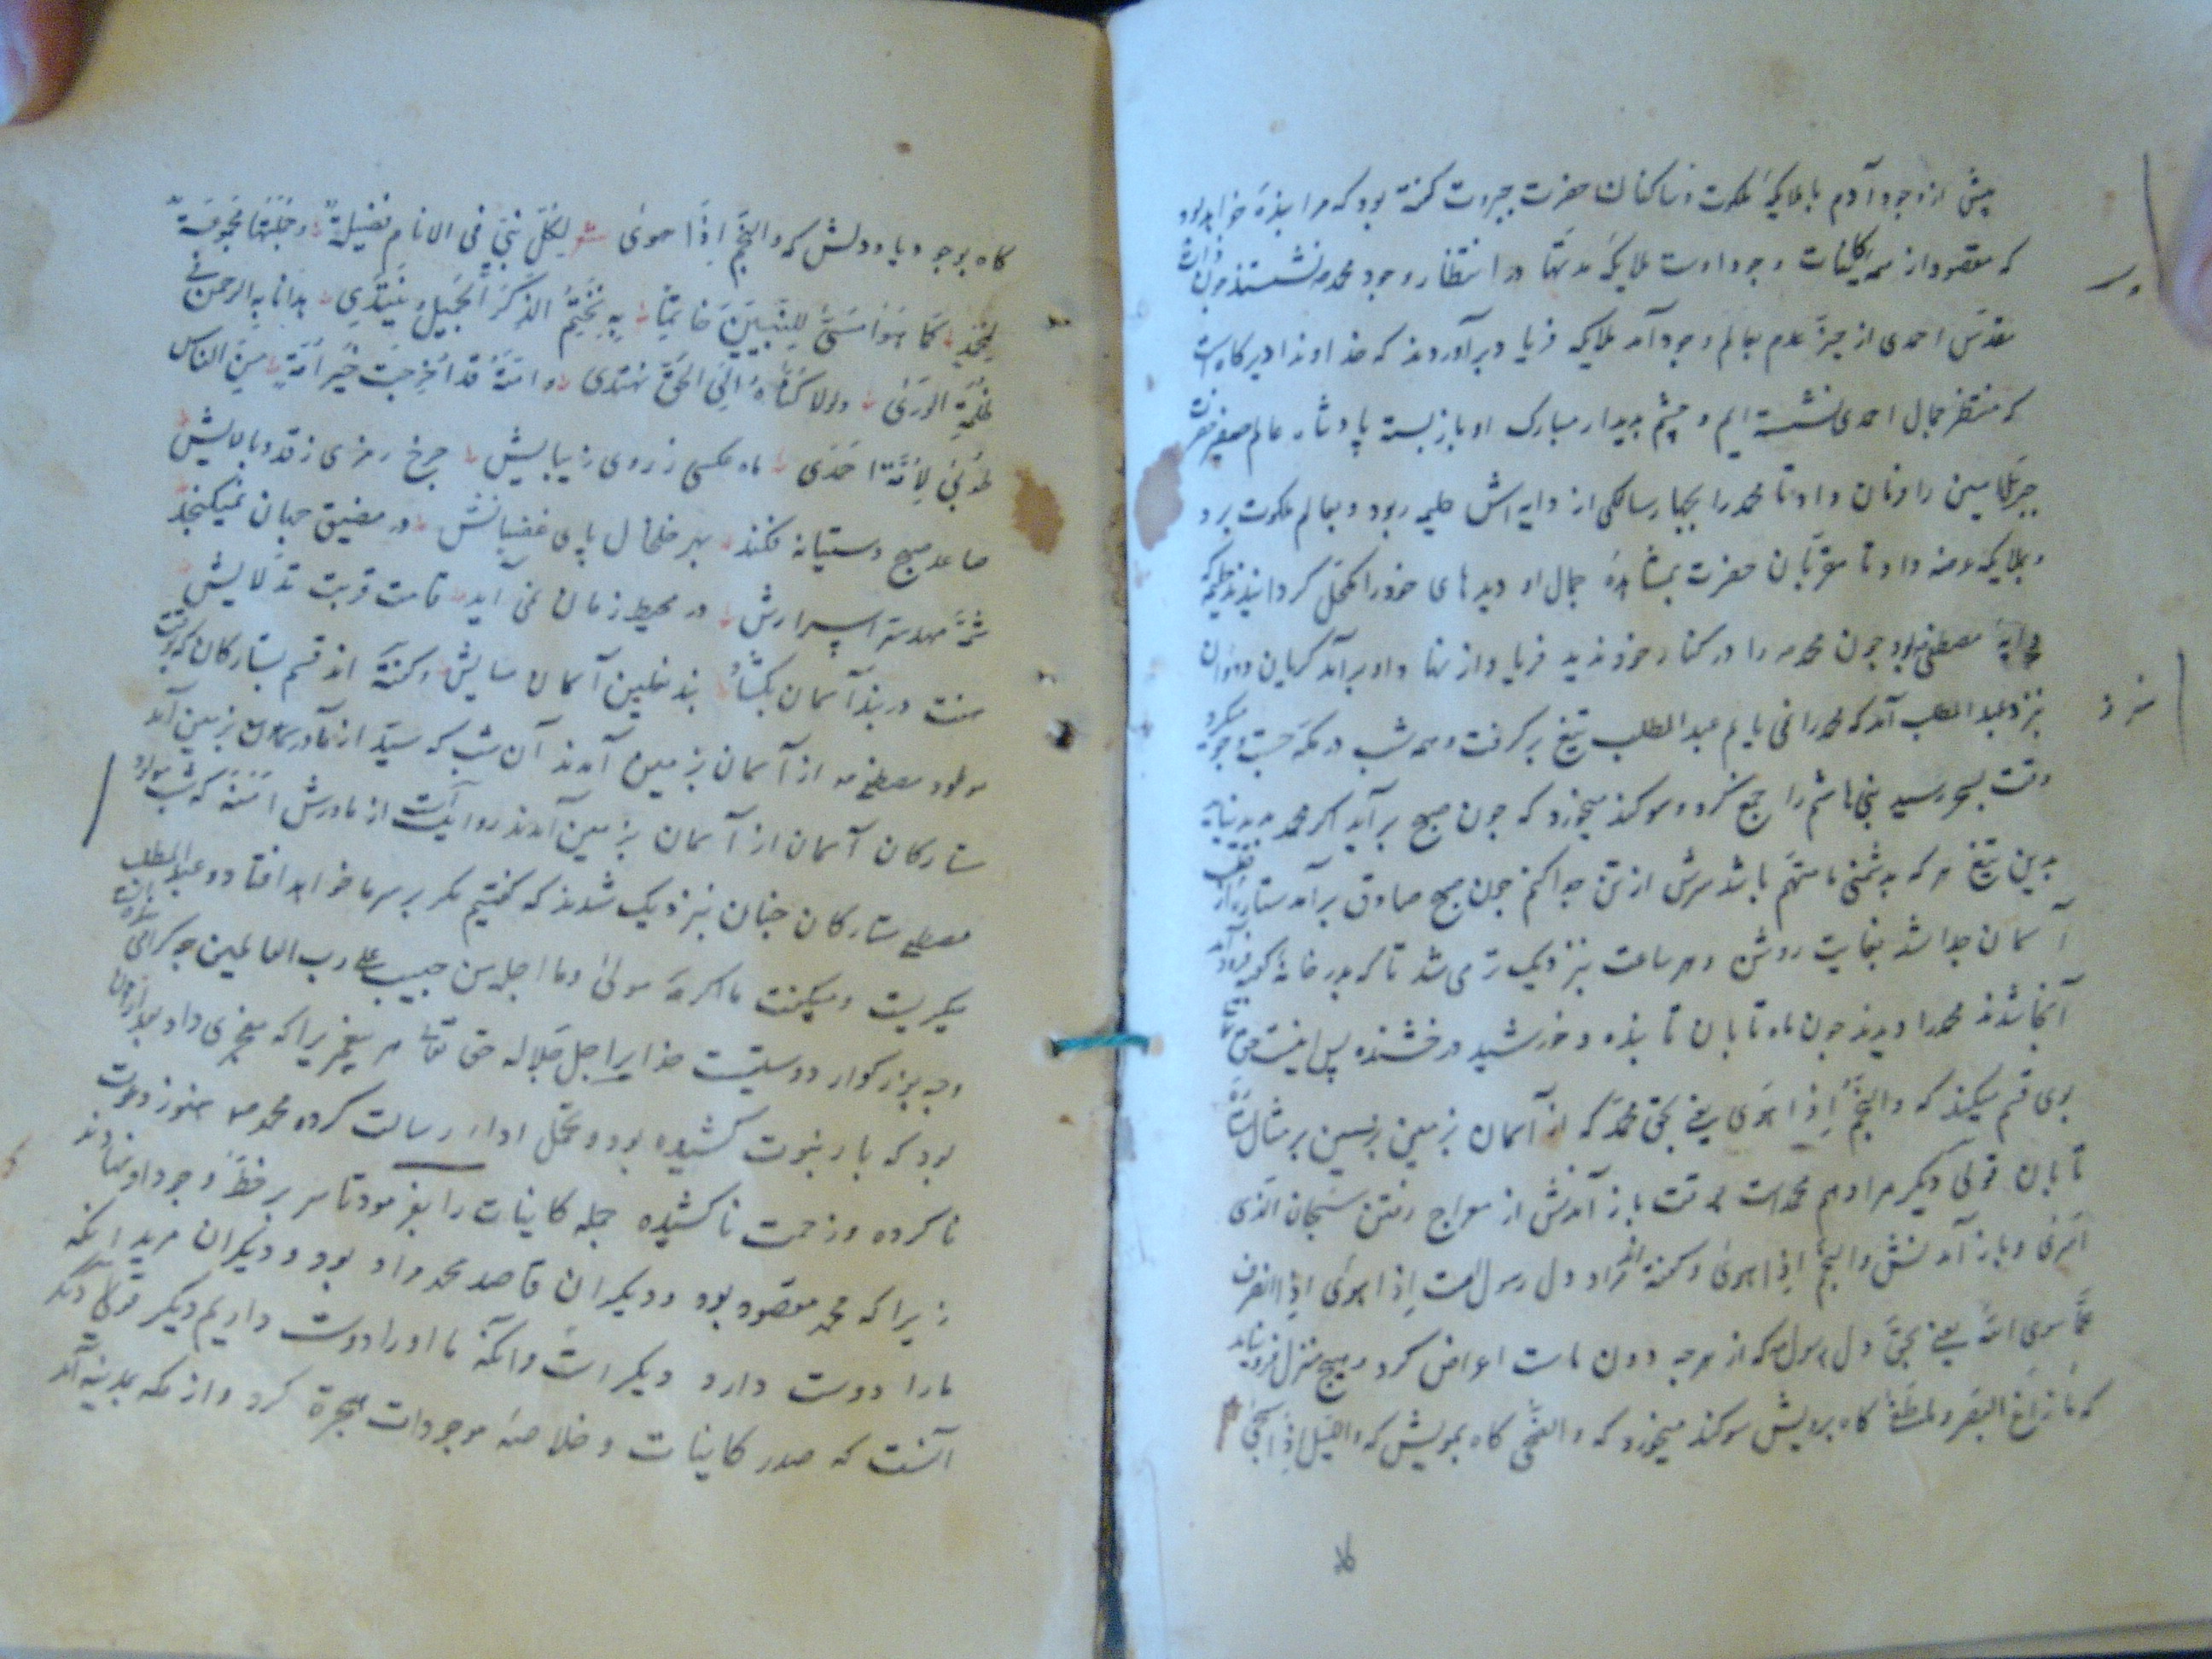 پیش از وجود آدم با ملایکهٔ ملکوت و ساکنان حضرت جبروت گفته بود که مرا بندهٔ خواهد بود
که مقصود از همه کاینات وجود اوست ملایکه مدتها در انتظار وجود محمد ص نشستند چون ذات
مقدس احمدی از حیز عدم بعالم وجود آمد ملایکه فریاد برآوردند که خداوندا دیر کاهست
که منتظر جمال احمدی نشسته ایم و چشم بدیدار مبارک او باز بسته پادشاه عالم
جبرئیل امین را فرمان داد تا محمد را بچهار سالگی از دایه اش حلیمه ربود و بعالم ملکوت برد
و بملایکه عرضه داد تا مقربان حضرت بمشاهدهٔ جمال او دیدهای خود را مکحل گردانیدند حلیمه که
دایهٔ مصطفی بود چون محمد ص را در کنار خود ندید فریاد از نهاد او برآمد گریان و دوان
نزد عبد المطلب آمد که محمد را نمی یابم عبد المطلب تیغ برگرفت و همه شب در مکه جست و جوی میکرد
وقت سحر رسید بنی هاشم را جمع کرد و سوکند میخورد که چون صبح برآید اگر محمد پدید نیاید
بدین تیغ هر که بدشمنی ما متهم باشد سرش از تن جدا کنم چون صبح صادق برآمد ستاره از
آسمان جدا شد بغایت روشن و هر ساعت نزدیک تر می شد تا که بدر خانهٔ کعبه فرو آمد
آنجا شدند محمد را دیدند چون ماه تابان تابنده و خورشید درخشنده پس اینست حق تعالی
بوی قسم میکند که والنجم اذا هوی یعنی بحق محمد که از آسمان بزمین رسید بر مثال ستاره
تابان قولی دیگر مراد هم محمد است وقت باز آمدنش از معراج رفتن سبحان الذی
اسری و باز آمدنش والنجم اذا هوی و گفته اند مراد دل رسول است اذا هوی اذا انصرف
عما سوی الله یعنی بحق دل رسول که از هرچه دون ماست اعراض کرد و بهیچ منزل فرو نیامد
که ما زاغ البصر و ما طغی کاه برویش سوکند میخورد که والضحی کاه بمویش که واللیل اذا سجی
کاه بوجود با وجودش که والنجم اذا هوی شعر لکل نبی فی الانام فضیلة وجملتها مجموعة
لمحمد کما هو امسی للنبیین خاتما به نختم الذکر الجمیل ونبتدی هدانا به الرحمن فی
ظلمة الوری ولولاه کنا الی الحق نهتدی وامته قد اخرجت خیر امة من الناس
طوبی لامة احمدی ماه عکسی ز روی زیبایش چرخ رمزی ز قد و بالایش
صاعد صبح دستیانه فکند بهر خلخال پای در مضیق جهان نمیکنجد
شمهٔ مهد سر اسرارش در محیط زمان نمی آید قامت قربت تدلایش
هفت دربند آسمان بکشاد بند نعلین آسمان سایش و گفته اند قسم بستارکان که وقت
مولود مصطفی ص از آسمان بزمین آمدند آن شب که سید از مادر بزمین آمد
ستارکان آسمان از آسمان بزمین آمدند روایت است از مادرش آمنه که شب مولود
مصطفی ستارکان چنان نزدیک شدند که گفتیم مکر بر سر ما خواهد افتاد و عبد المطلب
میکریست و میکفت ما اکرمه مولی وما اجله من حبیب علی رب العالمین چه کرامی بندهٔ
وچه بزرکوار دوستیست خدایرا جل جلاله حق تعالی هر پیغمبریرا که معجزی داد بعد از آن
بود که بار نبوت کشیده بود و تحمل اداء رسالت کرده محمد ص هنوز دعوت
ناکرده و زحمت ناکشیده جمله کاینات را بفرمود تا سر بر خط وجود او نهادند
زیرا که محمد مقصود بود و دیکران قاصد محمد مراد بود و دیکران مرید آنکه
ما را دوست دارد دیکر است و آنکه ما او را دوست داریم دیکر قولی دیکر
آنست که صدر کاینات و خلاصهٔ موجودات هجرة کرد و از مکه بمدینه آمد